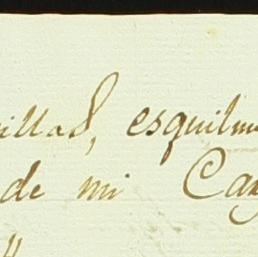 illas, esquilm
de mi Cay